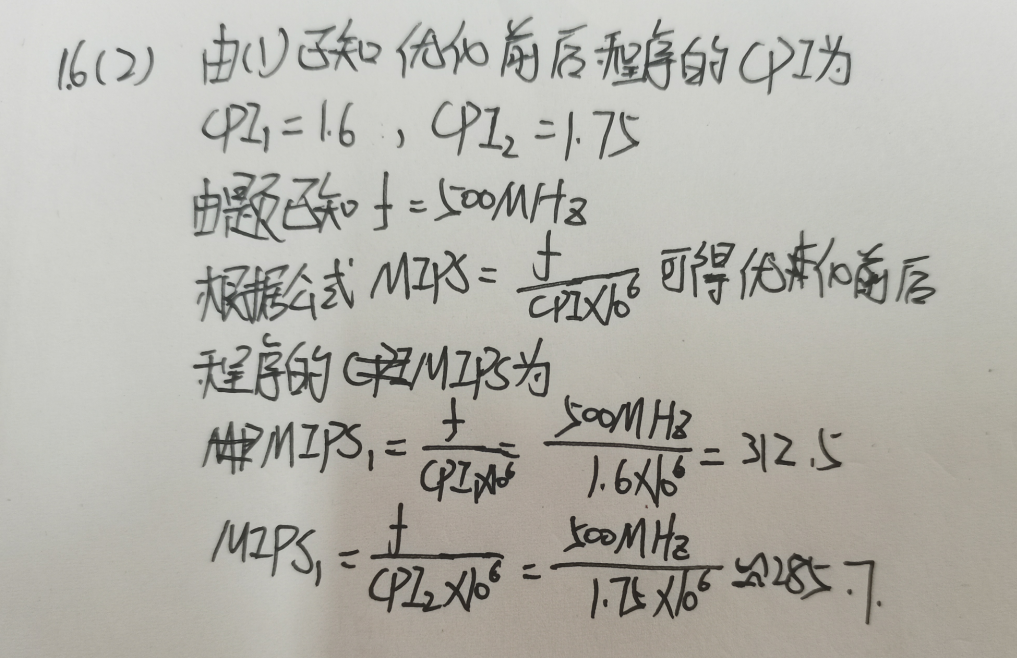 1.6(2) 由(1)已知优化前后程序的CPI为
CPI₁=1.6 , CPI₂=1.75
由题已知 f=500MHz
根据公式 MIPS = f/(CPI×10⁶) 可得优化前后
程序的MIPS为
MIPS₁ = f/(CPI₁×10⁶) = 500MHz/(1.6×10⁶) = 312.5
MIPS₁ = f/(CPI₂×10⁶) = 500MHz/(1.75×10⁶) ≈ 285.7.